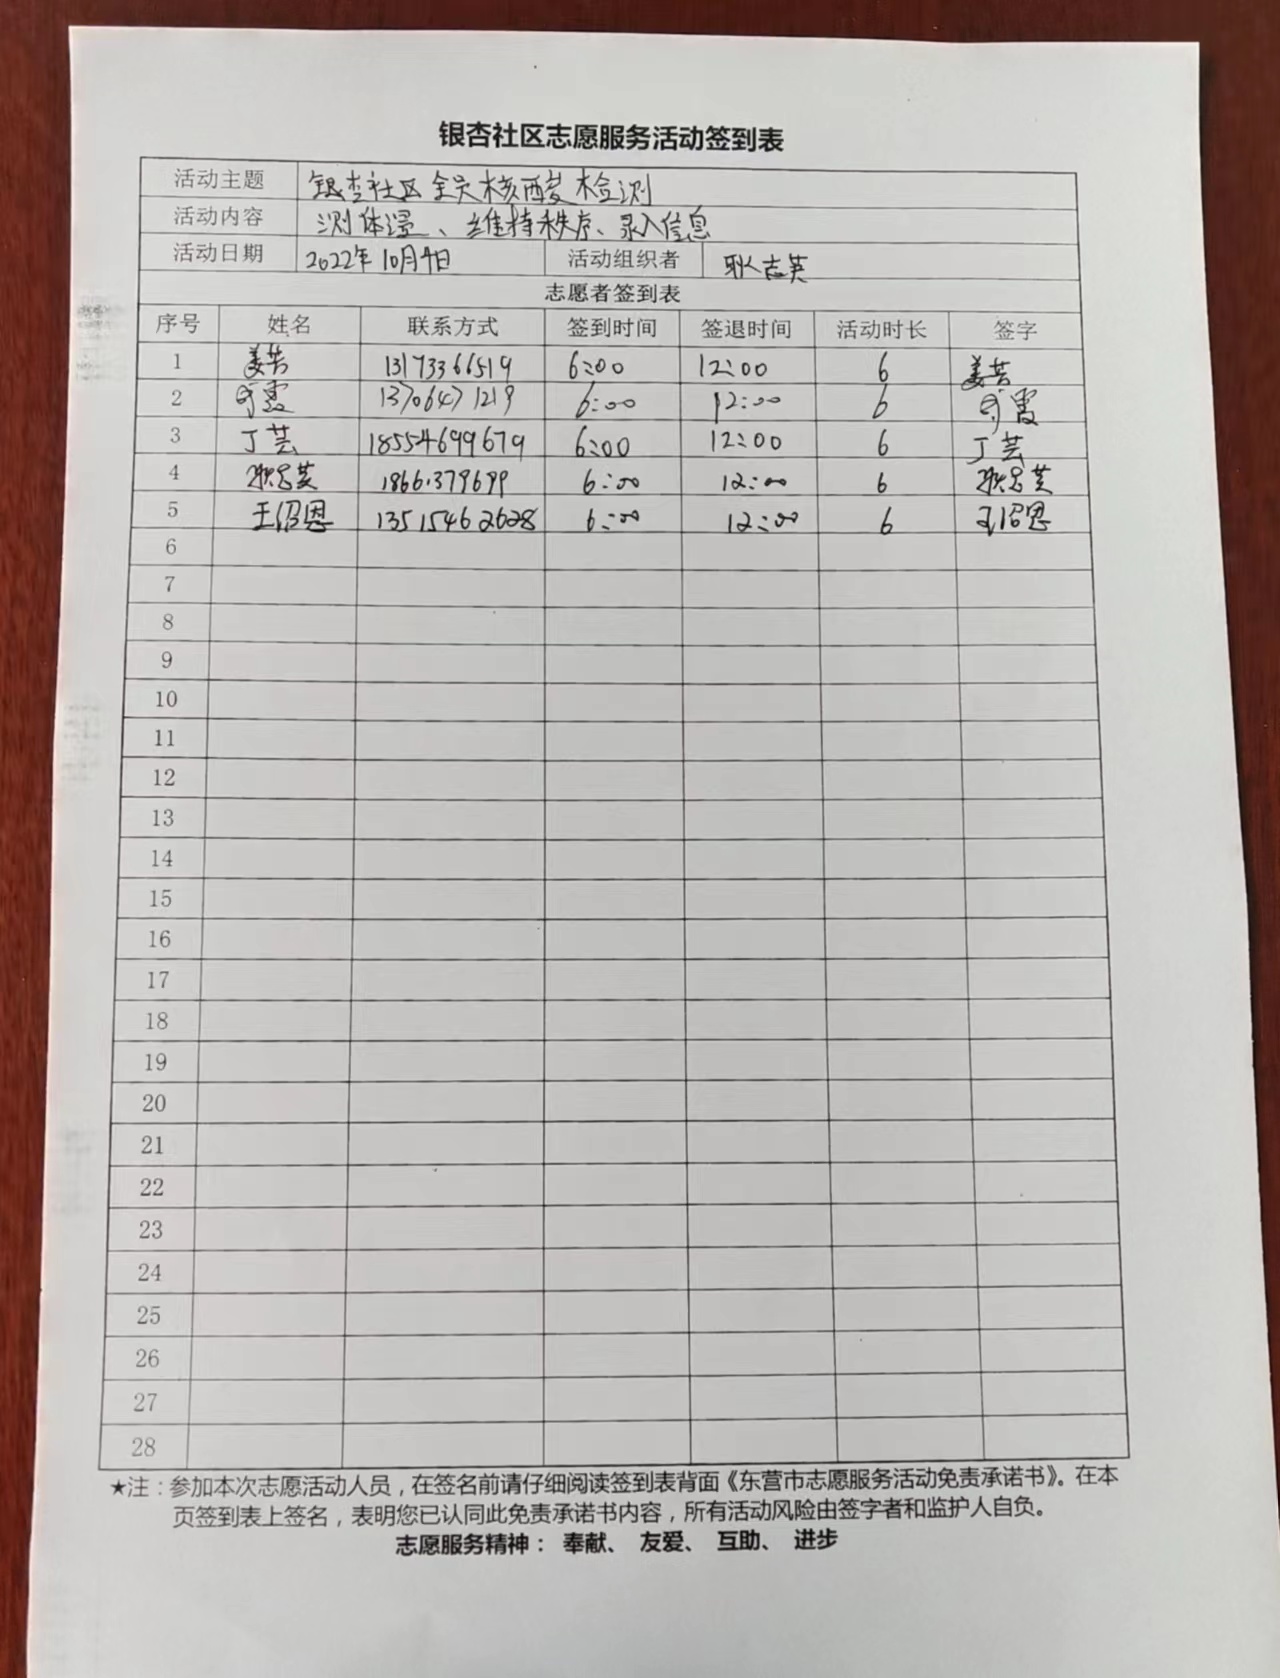 银杏社区志愿服务活动签到表
活动主题 银杏社区全员核酸检测
活动内容 测体温、维持秩序、录入信息
活动日期 2022年10月4日 活动组织者 耿志英
志愿者签到表
序号 姓名 联系方式 签到时间 签退时间 活动时长 签字
1 姜芳 13173366519 6:00 12:00 6 姜芳
2 霞 13706471219 6:00 12:00 6 霞
3 丁芸 18554699679 6:00 12:00 6 丁芸
4 6:00 12:00 6
5 王绍恩 13515462628 6:00 12:00 6 王绍恩
6
7
8
9
10
11
12
13
14
15
16
17
18
19
20
21
22
23
24
25
26
27
28
★注：参加本次志愿活动人员，在签名前请仔细阅读签到表背面《东营市志愿服务活动免责承诺书》。在本
页签到表上签名，表明您已认同此免责承诺书内容，所有活动风险由签字者和监护人自负。
志愿服务精神： 奉献、 友爱、 互助、 进步